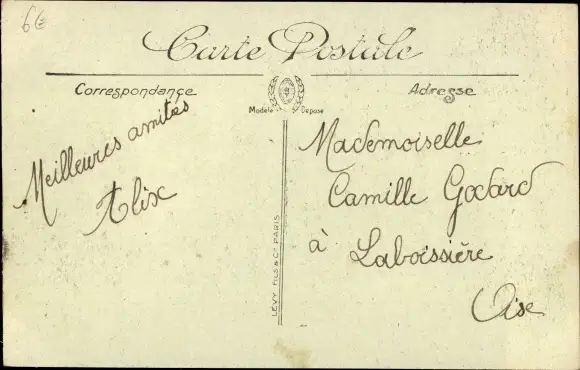 6€
Carte Postale
Correspondance
Adresse
Modèle Déposé
Meilleures amitiés
Alix
LÉVY FILS & Cie PARIS
Mademoiselle
Camille Godard
à Laboissière
Oise